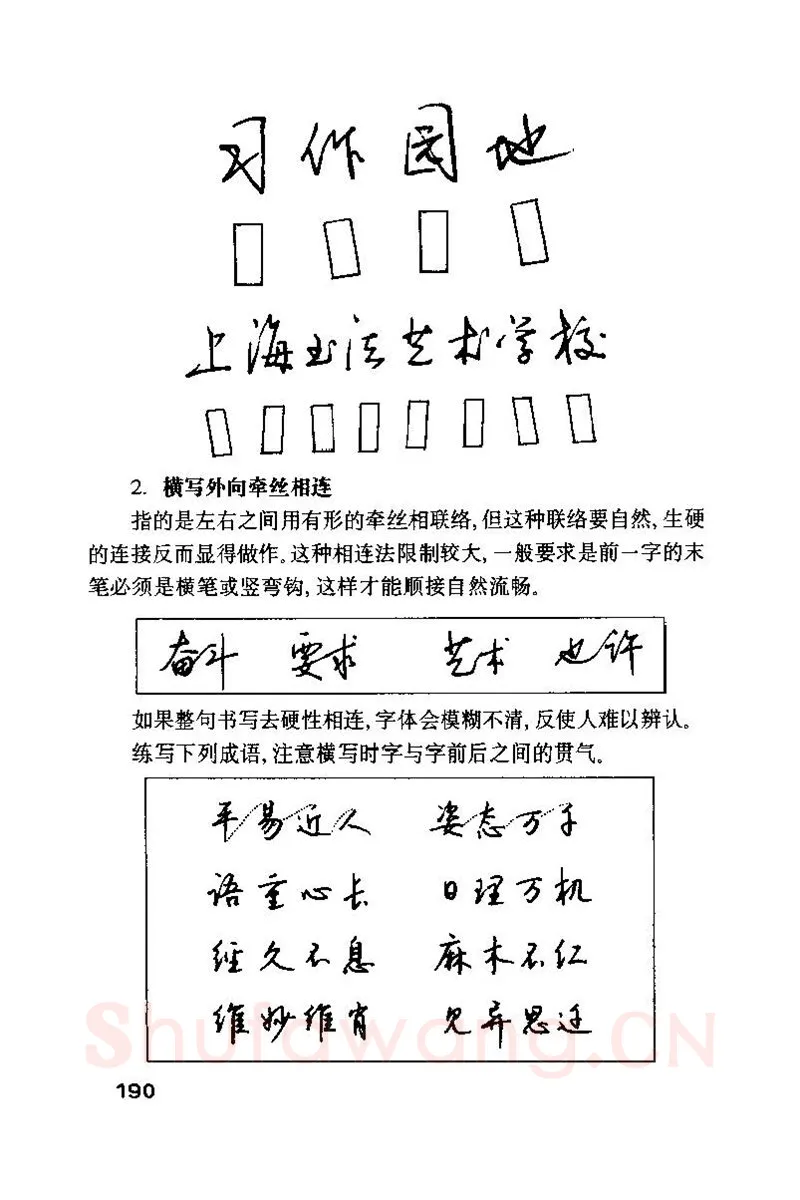 习作园地
上海书法艺术学校
2. 横写外向牵丝相连
指的是左右之间用有形的牵丝相联络,但这种联络要自然,生硬
的连接反而显得做作。这种相连法限制较大,一般要求是前一字的末
笔必须是横笔或竖弯钩,这样才能顺接自然流畅。
奋斗 要求 艺术 也许
如果整句书写去硬性相连,字体会模糊不清,反使人难以辨认。
练写下列成语,注意横写时字与字前后之间的贯气。
平易近人 姿态万千
语重心长 日理万机
经久不息 麻木不仁
维妙维肖 见异思迁
Shufawang.CN
190